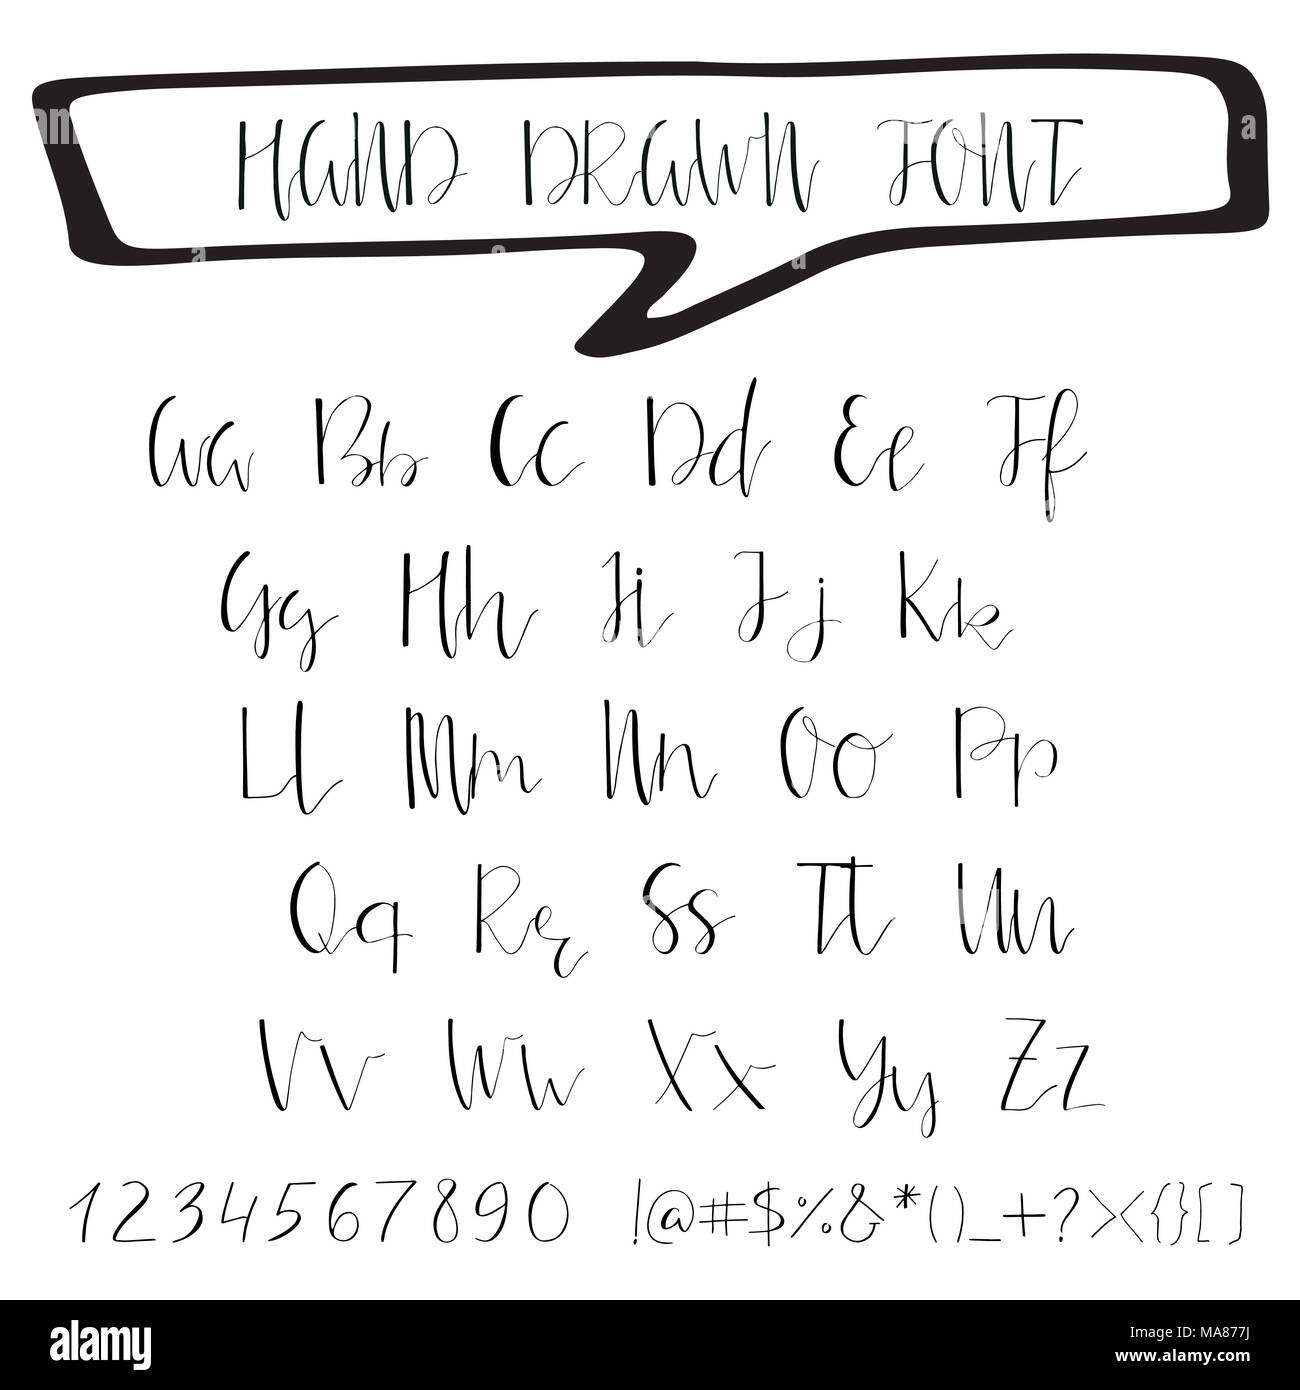 HAND DRAWN FONT
Aa Bb Cc Dd Ee Ff
Gg Hh Ii Jj Kk
Ll Mm Nn Oo Pp
Qq Rr Ss Tt Uu
Vv Ww Xx Yy Zz
1234567890 !@#$%&*()_+?><{}[]
alamy
Image ID: MA877J
www.alamy.com